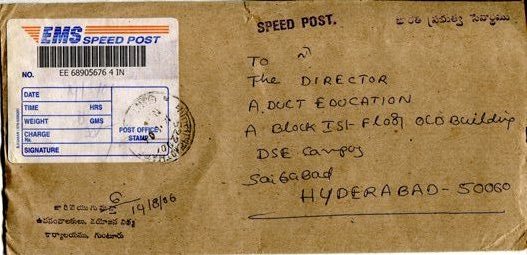 EMS SPEED POST
NO. EE 68905676 4 IN
DATE
TIME HRS
WEIGHT GMS
CHARGE
Rs.
SIGNATURE
POST OFFICE
STAMP
SPEED POST.
భారత ప్రభుత్వ సేవార్థము
TO
The DIRECTOR
A.DUCT EDUCATION
A Block IST-Floor OLD Building
DSE Campus
Saifabad
HYDERABAD-50060
14/8/06
ఉపసంచాలకులు, వయోజన విద్య
కార్యాలయము, గుంటూరు